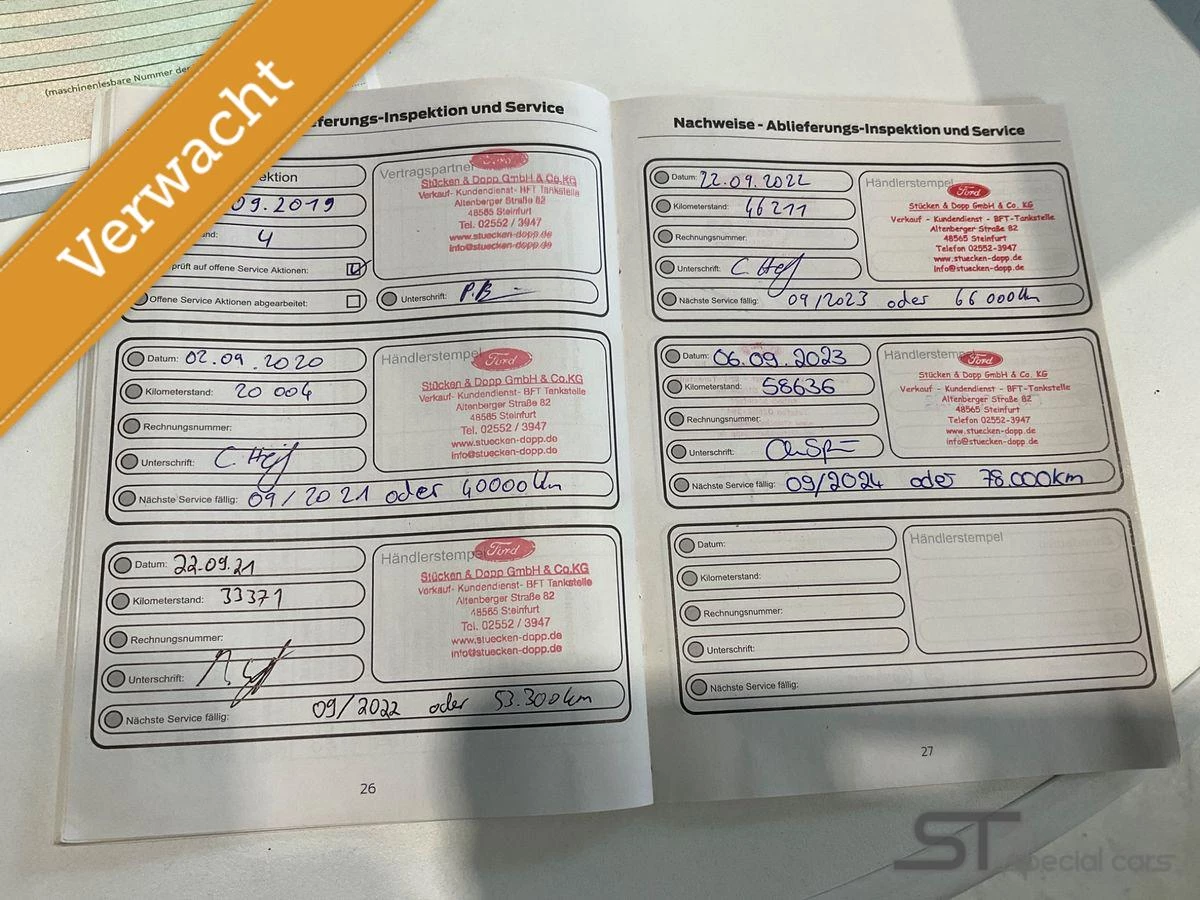 Verwacht
(maschinenlesbare Nummer der
eferungs-Inspektion und Service
ektion
09.2019
nd: 4
prüft auf offene Service Aktionen:
Offene Service Aktionen abgearbeitet:
Vertragspartner
Ford
Stücken & Dopp GmbH & Co.KG
Verkauf- Kundendienst- BFT Tankstelle
Altenberger Straße 82
48565 Steinfurt
Tel. 02552 / 3947
www.stuecken-dopp.de
info@stuecken-dopp.de
Unterschrift: P.B
Datum: 02.09.2020
Kilometerstand: 20 004
Rechnungsnummer:
Unterschrift:
Nächste Service fällig: 09/2021 oder 40000 km
Händlerstempel
Ford
Stücken & Dopp GmbH & Co.KG
Verkauf- Kundendienst- BFT Tankstelle
Altenberger Straße 82
48565 Steinfurt
Tel. 02552 / 3947
www.stuecken-dopp.de
info@stuecken-dopp.de
Datum: 22.09.21
Kilometerstand: 33371
Rechnungsnummer:
Unterschrift:
Nächste Service fällig: 09/2022 oder 53.300km
Händlerstempel
Ford
Stücken & Dopp GmbH & Co.KG
Verkauf- Kundendienst- BFT Tankstelle
Altenberger Straße 82
48565 Steinfurt
Tel. 02552 / 3947
www.stuecken-dopp.de
info@stuecken-dopp.de
26
Nachweise - Ablieferungs-Inspektion und Service
Datum: 22.09.2022
Kilometerstand: 46211
Rechnungsnummer:
Unterschrift:
Nächste Service fällig: 09/2023 oder 66 000km
Händlerstempel
Ford
Stücken & Dopp GmbH & Co. KG
Verkauf - Kundendienst - BFT-Tankstelle
Altenberger Straße 82
48565 Steinfurt
Telefon 02552-3947
www.stuecken-dopp.de
info@stuecken-dopp.de
Datum: 06.09.2023
Kilometerstand: 58636
Rechnungsnummer:
Unterschrift:
Nächste Service fällig: 09/2024 oder 78.000km
Händlerstempel
Ford
Stücken & Dopp GmbH & Co. KG
Verkauf - Kundendienst - BFT-Tankstelle
Altenberger Straße 82
48565 Steinfurt
Telefon 02552-3947
www.stuecken-dopp.de
info@stuecken-dopp.de
Datum:
Kilometerstand:
Rechnungsnummer:
Unterschrift:
Nächste Service fällig:
Händlerstempel
27
ST special cars